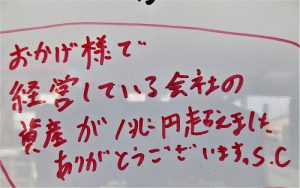 おかげ様で
経営している会社の
資産が1兆円超えました
ありがとうございます。S.C